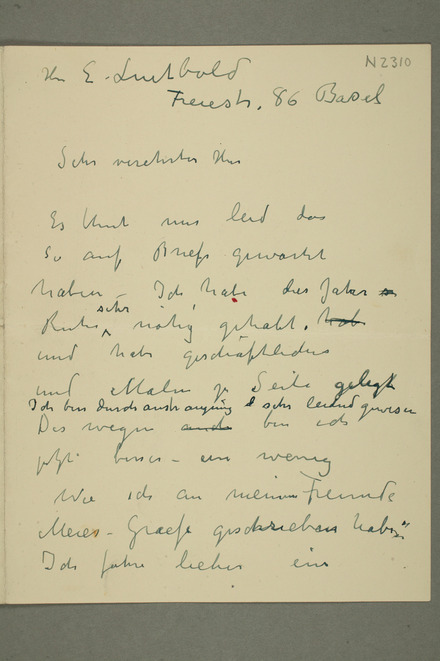 N2310
Hrr E. Luitbold
Freiestr. 86 Basel
Sehr verehrter Herr
Es thut mir leid das
So auf Briefe gewartet
haben – Ich habe dies Jahr
Ruhe sehr nötig gehabt.
und habe geschäftliches
und Malen zu Seite gelegt
Ich bin durch anstrangung sehr leidend gewesen
Des wegen bin ich
jetzt besser – ein wenig
Wie ich an meinen Freunde
Meier-Graefe geschrieben habe"
Ich fahre lieber ein